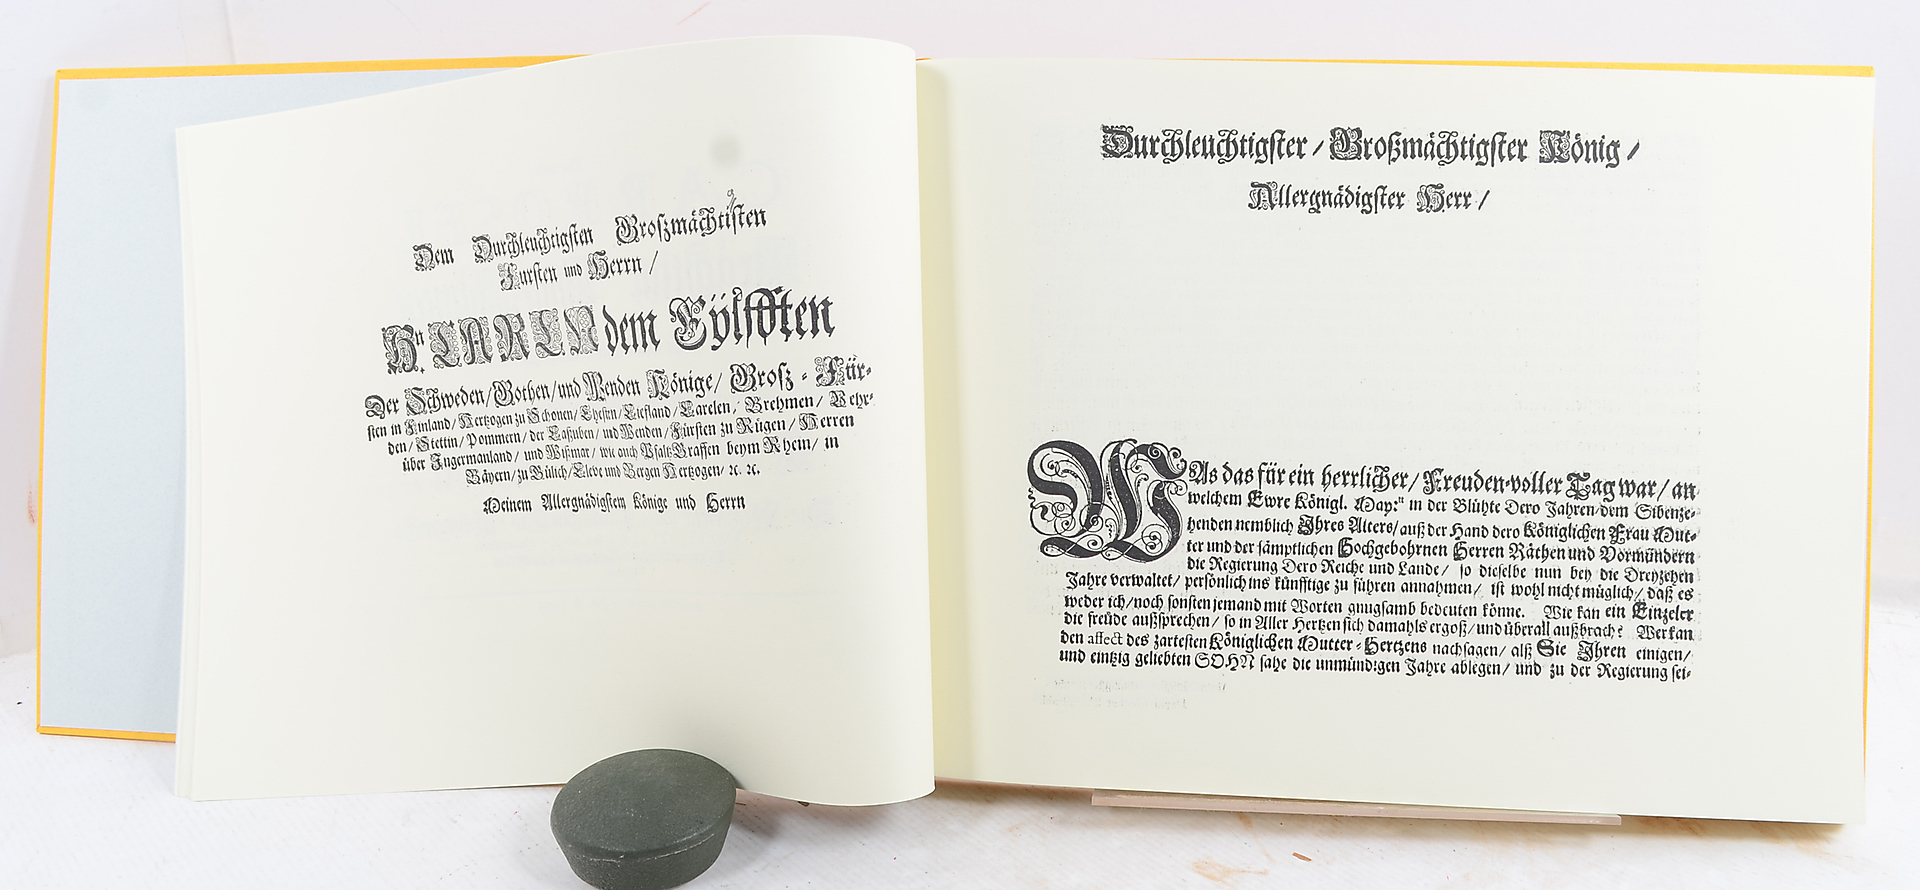 Dem Durchleuchtigsten Großmächtigsten
Fursten und Herrn /
Hn. CARLN dem Eylfften
Der Schweden / Gothen / und Wenden Könige / Grosz - Für-
sten in Finland / Hertzogen zu Schonen / Ehesten / Liefland / Carelen / Brehmen / Vehr-
den / Stettin / Pommern / der Caßuben / und Wenden / Fürsten zu Rügen / Herren
über Ingermanland / und Wißmar / wie auch Pfaltz Graffen beym Rhein / in
Bäyern / zu Gülich / Cleve und Bergen Hertzogen / ꝛc. ꝛc.
Meinem Allergnädigstem Könige und Herrn
Durchleuchtigster / Großmächtigster König /
Allergnädigster Herr /
WAs das für ein herrlicher / Freuden-voller Tag war / an
welchem Ewre Königl. May:tt in der Blühte Dero Jahren / dem Sibenze-
henden nemblich Ihres Alters / auß der Hand dero Königlichen Frau Mut-
ter und der sämptlichen Hochgebohrnen Herren Räthen und Vormündern
die Regierung Dero Reiche und Lande / so dieselbe nun bey die Dreyzehen
Jahre verwaltet / persönlich ins künfftige zu führen annahmen / ist wohl nicht müglich / daß es
weder ich / noch sonsten jemand mit Worten gnugsamb bedeuten könne. Wie kan ein Einzeler
die freüde außsprechen / so in Aller Hertzen sich damahls ergoß / und überall außbrach? Wer kan
den affect des zartesten Königlichen Mutter-Hertzens nachsagen / alß Sie Ihren einigen /
und eintzig geliebten SOHN sahe die unmündigen Jahre ablegen / und zu der Regierung sei-